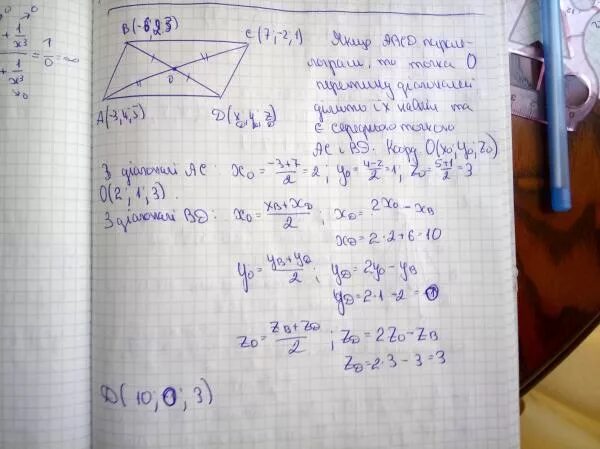 B(-6,2,3)
C(7,-2,1)
A(-3,4,5)
D(x, y, z)
O
Якщо ABCD парале-
лограм, то точка O
перетину діагоналей
ділить їх навпіл та
є серединою точкою
AC і BD. Коорд. O(x₀, y₀, z₀)
З діагоналі AC: x₀ = (-3+7)/2 = 2; y₀ = (4-2)/2 = 1; z₀ = (5+1)/2 = 3
O(2; 1; 3).
З діагоналі BD: x₀ = (x_B + x_D)/2; x_D = 2x₀ - x_B
x_D = 2·2+6 = 10
y₀ = (y_B + y_D)/2; y_D = 2y₀ - y_B
y_D = 2·1 - 2 = 0
z₀ = (z_B + z_D)/2; z_D = 2z₀ - z_B
z_D = 2·3 - 3 = 3
D(10; 0; 3)
+ 1/x³
+ 1/x³ = 1/0 = ∞